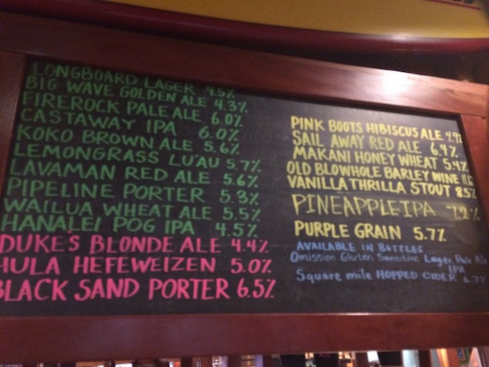 LONGBOARD LAGER 4.5%
BIG WAVE GOLDEN ALE 4.3%
FIREROCK PALE ALE 6.0%
CASTAWAY IPA 6.0%
KOKO BROWN ALE 5.6%
LEMONGRASS LU'AU 5.7%
LAVAMAN RED ALE 5.6%
PIPELINE PORTER 5.3%
WAILUA WHEAT ALE 5.5%
HANALEI POG IPA 4.5%
DUKE'S BLONDE ALE 4.4%
HULA HEFEWEIZEN 5.0%
BLACK SAND PORTER 6.5%
PINK BOOTS HIBISCUS ALE
SAIL AWAY RED ALE 6.4%
MAKANI HONEY WHEAT 5.4%
OLD BLOWHOLE BARLEY WINE
VANILLA THRILLA STOUT 8.5%
PINEAPPLE IPA 7.2%
PURPLE GRAIN 5.7%
AVAILABLE IN BOTTLES
Omission Gluten Sensitive Lager, Pale Ale
IPA
Square mile HOPPED CIDER 6.7%